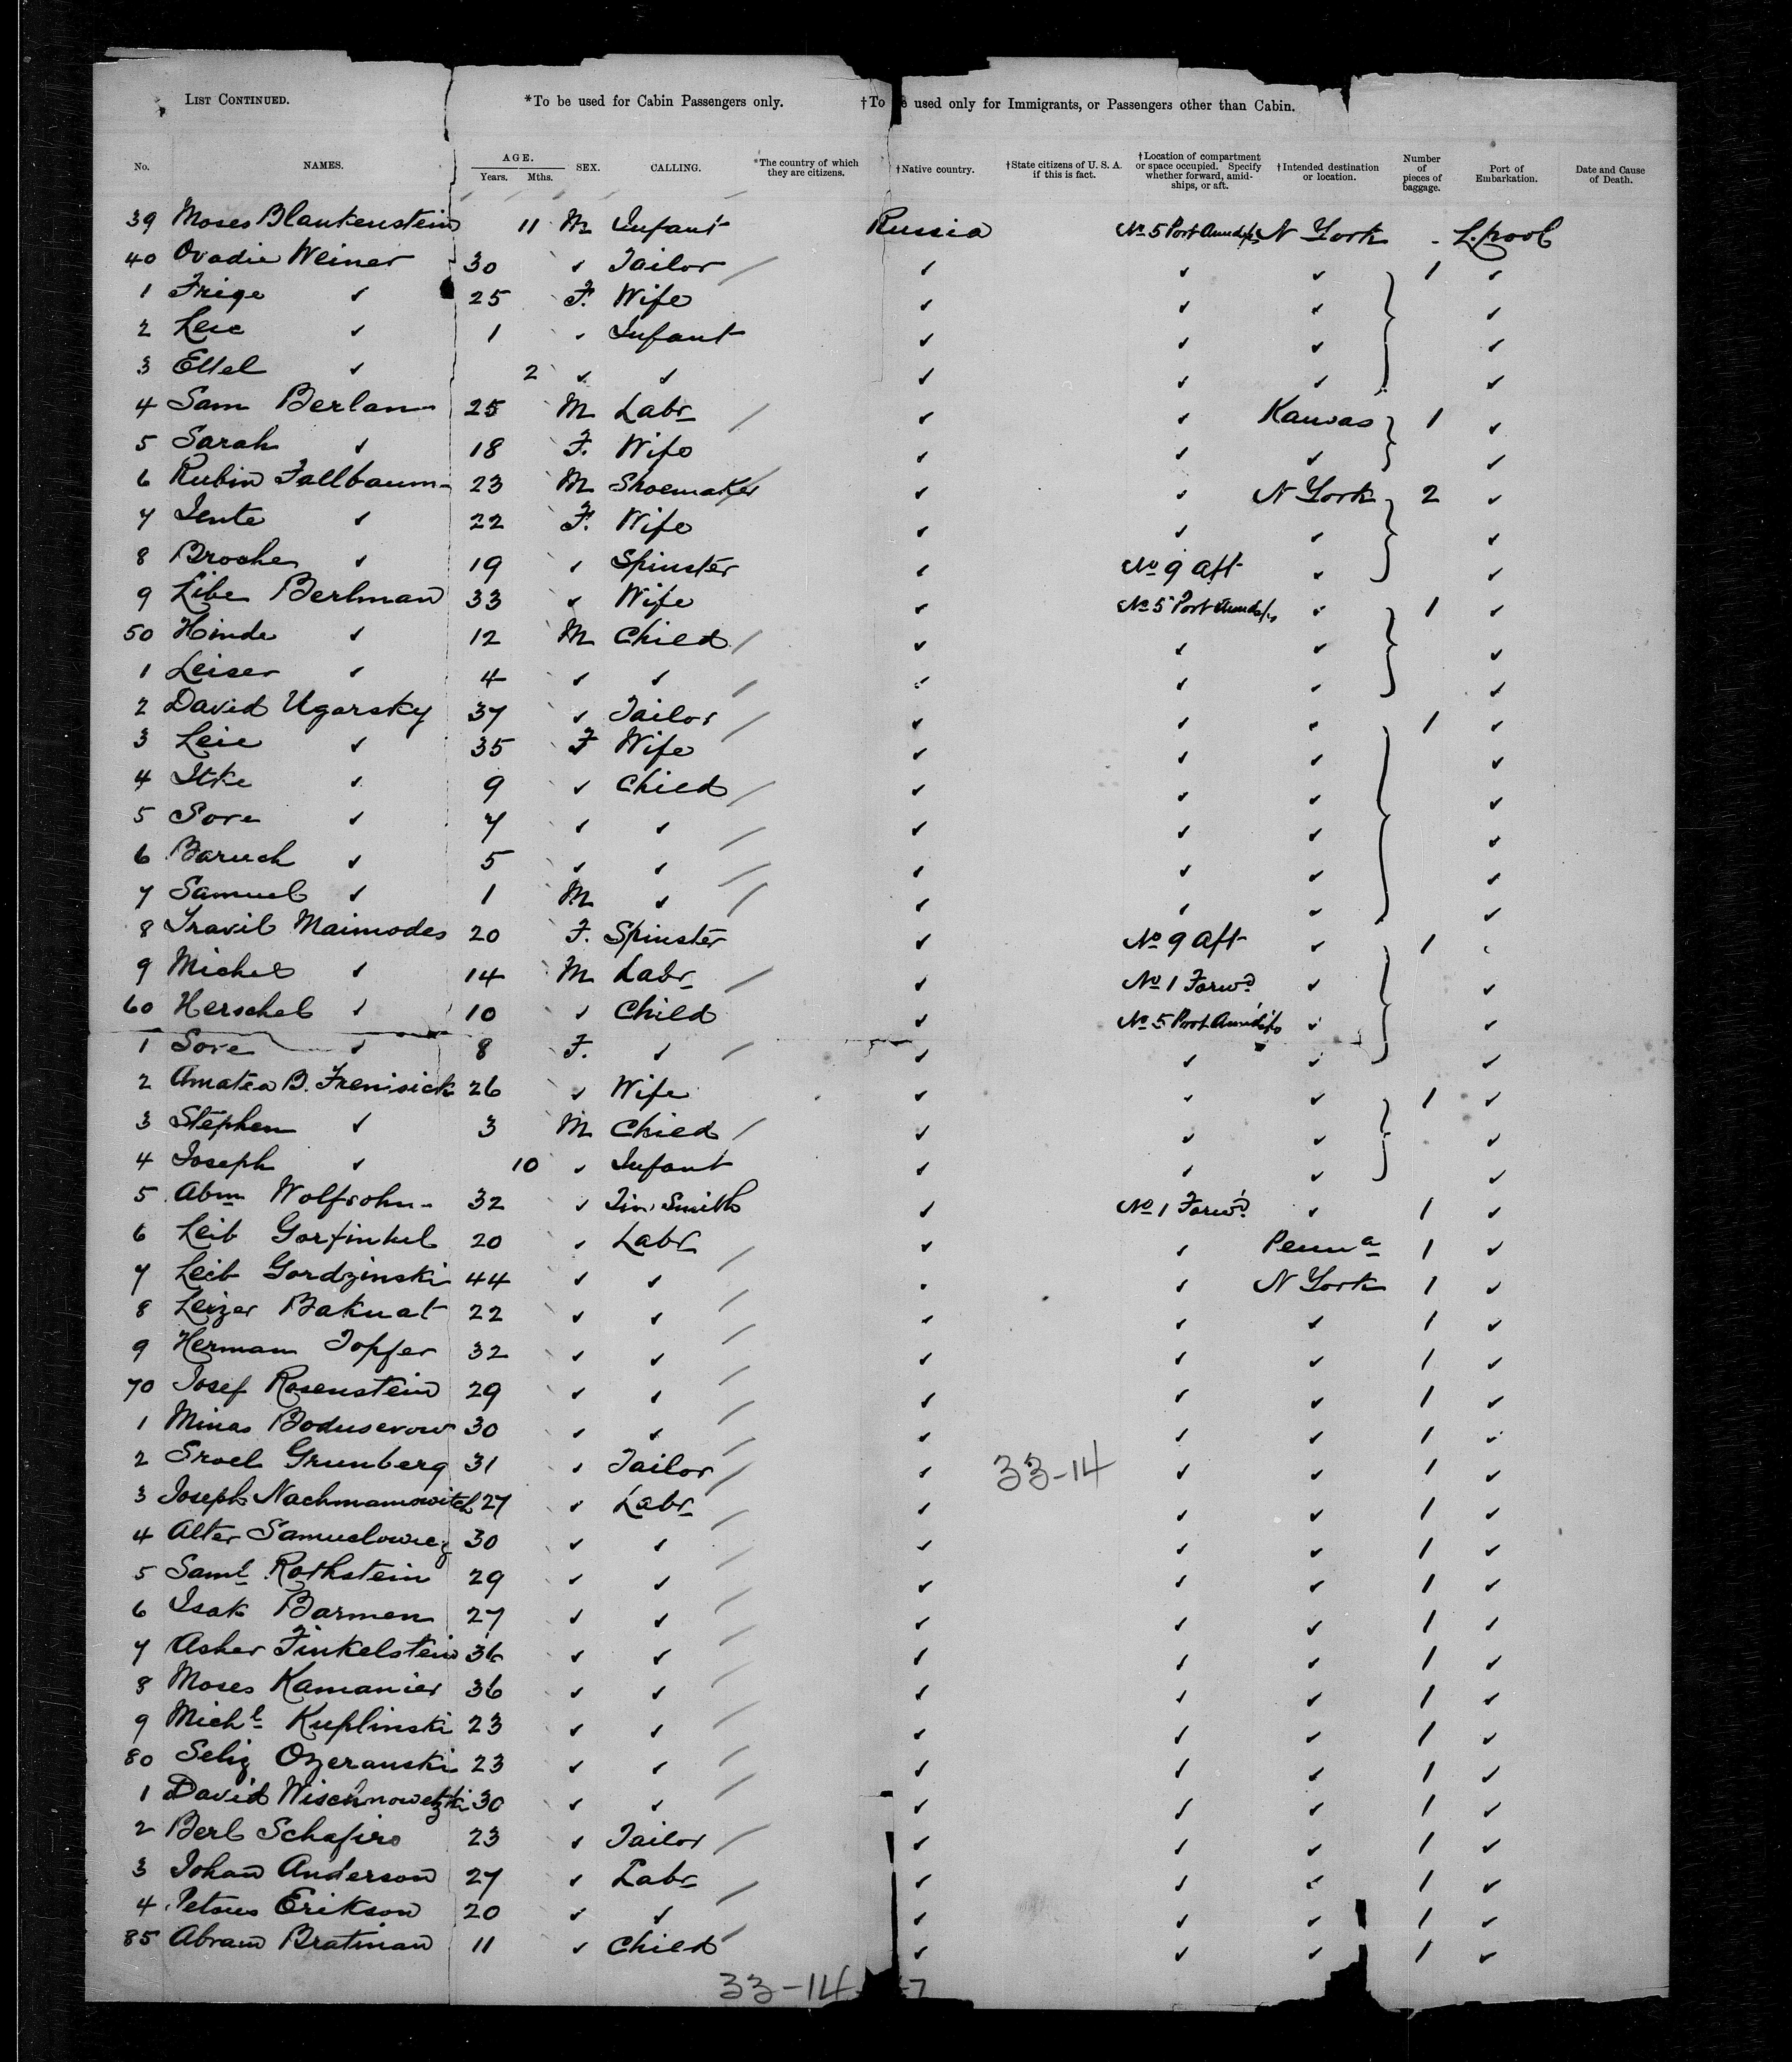 LIST CONTINUED. *To be used for Cabin Passengers only. †To be used only for Immigrants, or Passengers other than Cabin.
No. NAMES. AGE. Years. Mths. SEX. CALLING. *The country of which they are citizens. †Native country. †State citizens of U. S. A. if this is fact. †Location of compartment or space occupied. Specify whether forward, amidships, or aft. †Intended destination or location. Number of pieces of baggage. Port of Embarkation. Date and Cause of Death.
39 Moses Blankenstein 11 M Infant Russia No 5 Port Amidps N York L.pool
40 Ovadie Weiner 30 ✓ Tailor ✓ ✓ ✓ 1 ✓
1 Frige ✓ 25 F. Wife ✓ ✓ ✓ ✓
2 Leie ✓ 1 ✓ Infant ✓ ✓ ✓ ✓
3 Ettel ✓ 2 ✓ ✓ ✓ ✓ ✓ ✓
4 Sam Berlan 25 M Labr ✓ ✓ Kansas 1 ✓
5 Sarah ✓ 18 F. Wife ✓ ✓ ✓ ✓
6 Rubin Fallbaum 23 M Shoemaker ✓ ✓ N York 2 ✓
7 Jente ✓ 22 F. Wife ✓ ✓ ✓ ✓
8 Broche ✓ 19 ✓ Spinster ✓ No 9 Aft ✓ ✓
9 Libe Berlman 33 ✓ Wife ✓ No 5 Port Amidps ✓ 1 ✓
50 Hinde ✓ 12 M Child ✓ ✓ ✓ ✓
1 Leiser ✓ 4 ✓ ✓ ✓ ✓ ✓ ✓
2 David Ugorsky 37 ✓ Tailor ✓ ✓ ✓ 1 ✓
3 Leie ✓ 35 F Wife ✓ ✓ ✓ ✓
4 Itke ✓ 9 ✓ Child ✓ ✓ ✓ ✓
5 Sore ✓ 7 ✓ ✓ ✓ ✓ ✓ ✓
6 Baruch ✓ 5 ✓ ✓ ✓ ✓ ✓ ✓
7 Samuel ✓ 1 M ✓ ✓ ✓ ✓ ✓
8 Maimodes 20 F. Spinster ✓ No 9 Aft ✓ 1 ✓
9 Michel ✓ 14 M Labr ✓ No 1 Forwd ✓ ✓
60 Herschel ✓ 10 ✓ Child ✓ No 5 Port Amidps ✓ ✓
1 Sore ✓ 8 F. ✓ ✓ ✓ ✓ ✓
2 Amatea B. Frenisick 26 ✓ Wife ✓ ✓ ✓ 1 ✓
3 Stephen ✓ 3 M Child ✓ ✓ ✓ ✓
4 Joseph ✓ 10 ✓ Infant ✓ ✓ ✓ ✓
5 Abm Wolfsohn 32 ✓ Tin Smith ✓ No 1 Forwd ✓ 1 ✓
6 Leib Gorfinkel 20 ✓ Labr ✓ ✓ Penna 1 ✓
7 Leib Gordzinski 44 ✓ ✓ ✓ ✓ N York 1 ✓
8 Leizer Bakuat 22 ✓ ✓ ✓ ✓ ✓ 1 ✓
9 Herman Topfer 32 ✓ ✓ ✓ ✓ ✓ 1 ✓
70 Josef Rosenstein 29 ✓ ✓ ✓ ✓ ✓ 1 ✓
1 Minas Boduserow 30 ✓ ✓ ✓ ✓ ✓ 1 ✓
2 Sroel Grunberg 31 ✓ Tailor ✓ 33-14 ✓ ✓ 1 ✓
3 Joseph Nachmanowitch 27 ✓ Labr ✓ ✓ ✓ 1 ✓
4 Alter Samuelowicz 30 ✓ ✓ ✓ ✓ ✓ 1 ✓
5 Saml Rothstein 29 ✓ ✓ ✓ ✓ ✓ 1 ✓
6 Isak Barmen 27 ✓ ✓ ✓ ✓ ✓ 1 ✓
7 Asher Finkelstein 36 ✓ ✓ ✓ ✓ ✓ 1 ✓
8 Moses Kamanier 36 ✓ ✓ ✓ ✓ ✓ 1 ✓
9 Michl Kuplinski 23 ✓ ✓ ✓ ✓ ✓ 1 ✓
80 Selig Ozeranski 23 ✓ ✓ ✓ ✓ ✓ 1 ✓
1 David Wischnowetzki 30 ✓ ✓ ✓ ✓ ✓ 1 ✓
2 Berl Schafiro 23 ✓ Tailor ✓ ✓ ✓ 1 ✓
3 Johan Anderson 27 ✓ Labr ✓ ✓ ✓ 1 ✓
4 Petrus Erikson 20 ✓ ✓ ✓ ✓ ✓ 1 ✓
85 Abram Bratman 11 ✓ Child ✓ ✓ ✓ 1 ✓
33-14-7